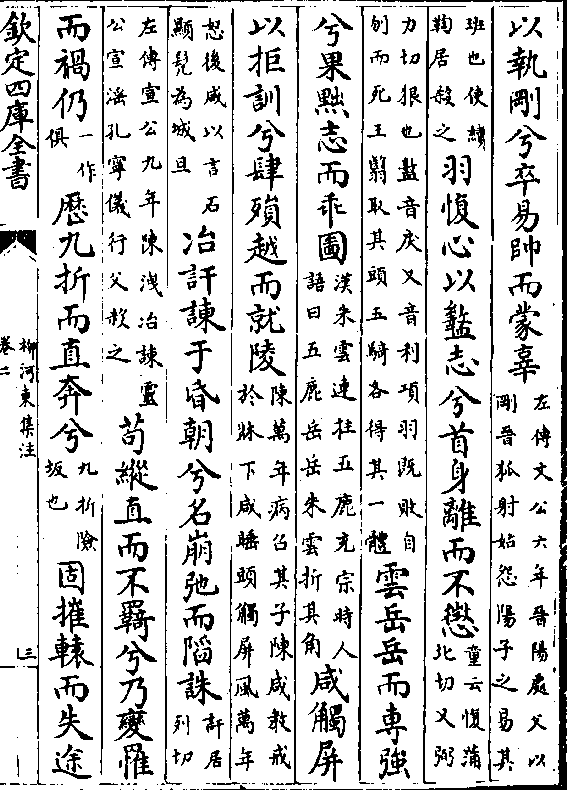 以執剛兮卒易帥而蒙辜左傳文公六年晉陽處父以
剛晉狐射姑怨陽子之易其
班也使續
鞫居殺之羽愎心以盭志兮首身離而不懲童云愎蒲
北切又弼
力切狠也盭音戾又音利項羽既敗自
刎而死王翳取其頭五騎各得其一體雲岳岳而專強
兮果黜志而乖圖漢朱雲連拄五鹿充宗時人
語曰五鹿岳岳朱雲折其角咸觸屏
以拒訓兮肆殞越而就陵陳萬年病召其子陳咸教戒
於牀下咸睡頭觸屏風萬年
怒後咸以言石
顯髠為城旦冶訐諫于昏朝兮名崩弛而陷誅訐居
列切
左傳宣公九年陳洩冶諫靈
公宣淫孔寧儀行父殺之苟縱直而不羈兮乃變罹
而禍仍一作
俱歷九折而直奔兮九折險
坂也固摧轅而失途
欽定四庫全書
柳河東集注
卷二
三